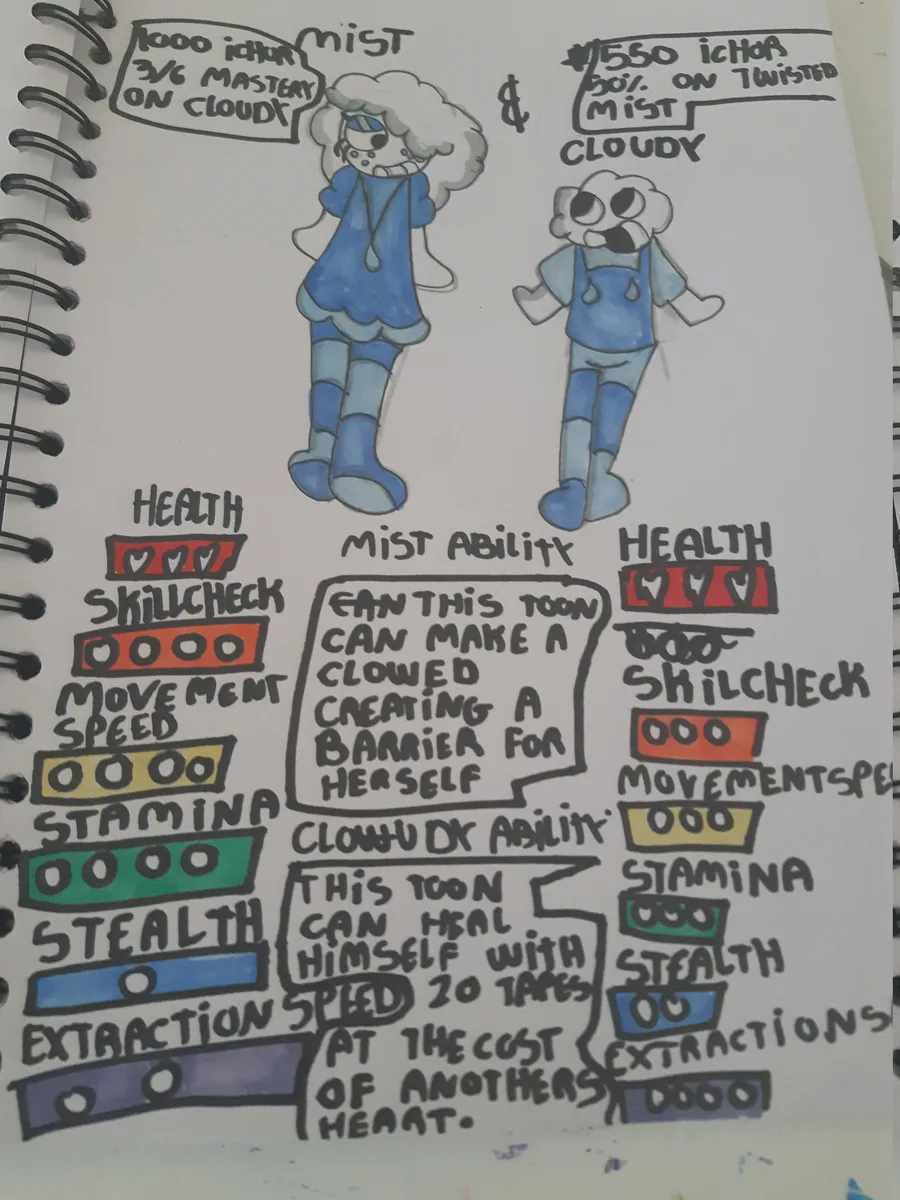 MIST
1000 ICHOR
3/6 MASTERY
ON CLOUDY
&
1550 ICHOR
50% ON TWISTED
MIST
CLOUDY
HEALTH
SKILLCHECK
MOVEMENT
SPEED
STAMINA
STEALTH
EXTRACTION SPEED
MIST ABILITY
THIS TOON
CAN MAKE A
CLOWED
CREATING A
BARRIER FOR
HERSELF
ABILITY
THIS TOON
CAN HEAL
HIMSELF WITH
20 TAPES
AT THE COST
OF ANOTHERS
HEART.
HEALTH
SKILCHECK
MOVEMENTSPE
STAMINA
STEALTH
EXTRACTIONS